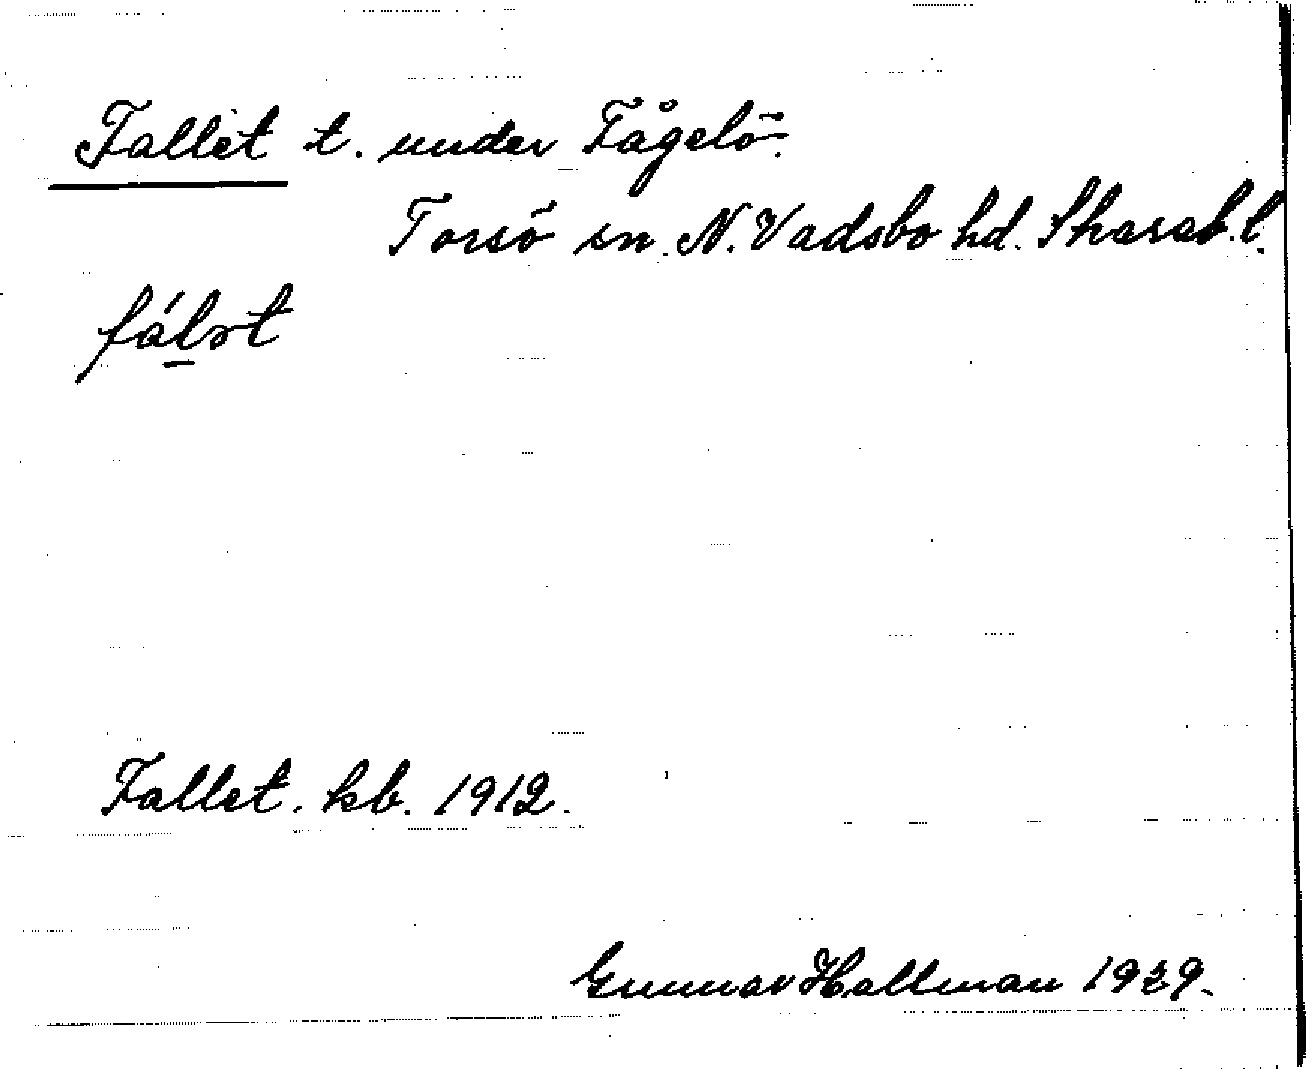 Fallet t. under Fågelö.
Torsö sn. N. Vadsbo hd. Skarab. l.
Fallet. kb. 1912.
Gunnar Hallman 1929.